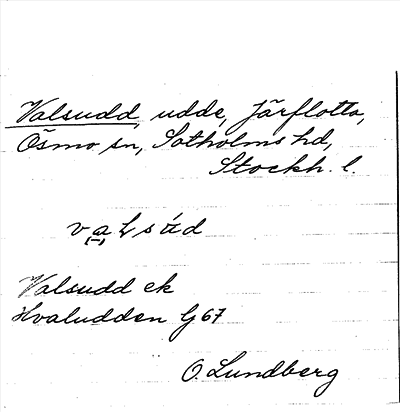 Valsudd, udde, Järflotta,
Ösmo sn, Sotholms hd,
Stockh. l.
va̠ƚsúd
Valsudd ek
Hvaludden Gj 67
O. Lundberg